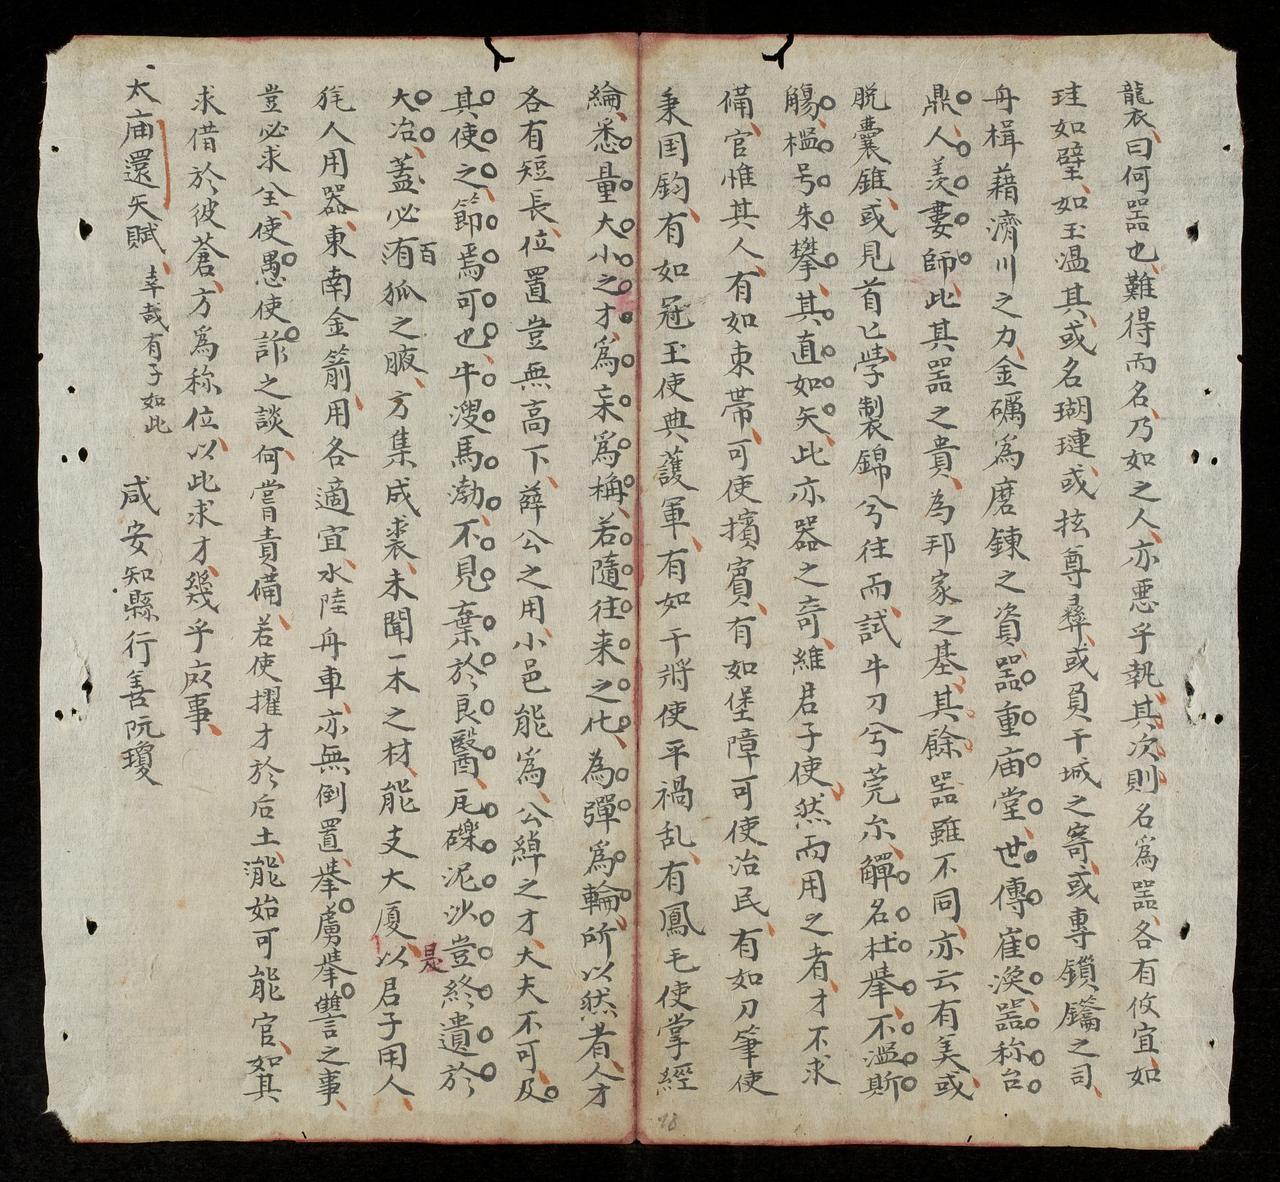 龍衣曰何噐也難得而名乃如之人亦悪乎執其次則名爲噐各有攸宜如
珪如璧如玉温其或名瑚璉或抎尊彞或負干城之寄或專鎖鑰之司
舟楫藉濟川之力金礪爲磨鍊之資噐重庙堂世傳崔渙噐称台
鼎人羙婁師此其噐之貴為邦家之基其餘噐雖不同亦云有美或
脱囊錐或見首匕學製錦兮往而試牛刀兮莞尔觶名杜舉不濫斯
觴檻号朱攀其直如矢此亦器之竒維君子使然而用之者才不求
備官惟其人有如束帶可使擯賓有如堡障可使治民有如刀筆使
秉国鈞有如冠玉使典護軍有如干將使平禍乱有鳳毛使掌經
綸悉量大小之才爲宋爲桷若隨往来之化為彈爲輪所以然者人才
各有短長位置豈無高下薛公之用小邑能爲公綽之才大夫不可及
其使之節焉可也牛溲馬渤不見棄於良醫瓦礫泥沙豈終遺於
大冶蓋必有百狐之腋方集成裘未聞一木之材能支大厦是以君子用人
毡人用器東南金箭用各適宜水陸舟車亦無倒置舉虜舉讐之事
豈必求全使愚使詐之談何嘗責備若使擢才於后土瀧始可能官如其
求借於彼蒼方爲称位以此求才幾乎废事
太庙還矢賦 幸哉有子如此 咸安知縣行善阮瓊